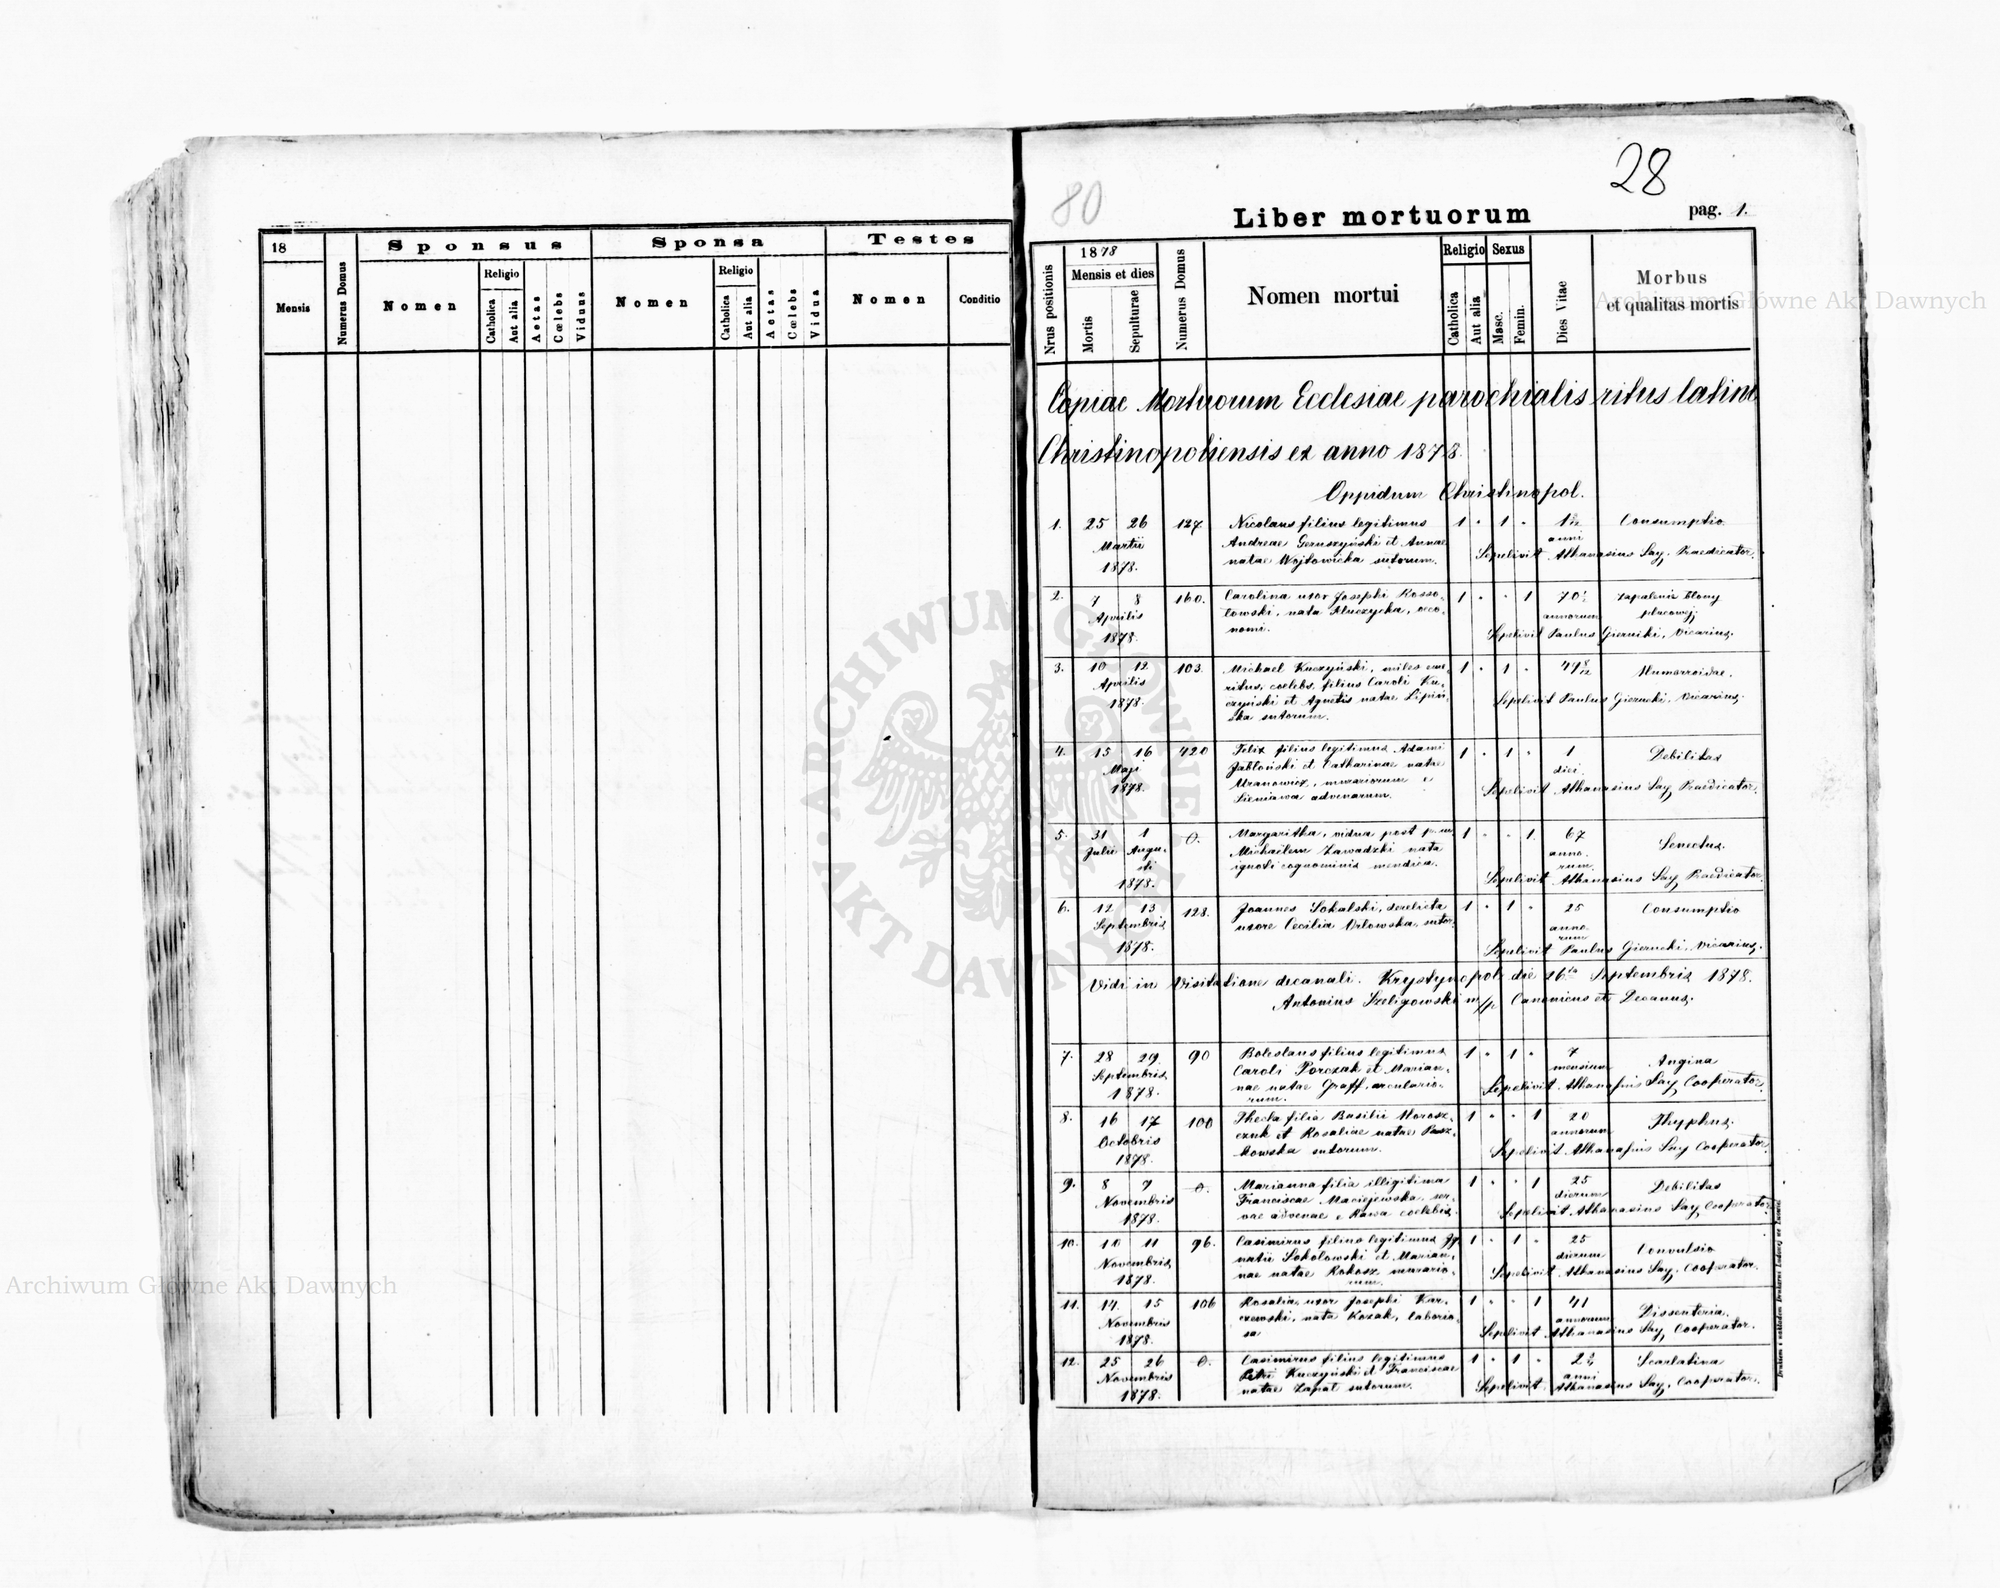 18
Mensis
Numerus Domus
Sponsus
Nomen
Religio
Catholica
Aut alia
Aetas
Cœlebs
Vidus
Sponsa
Nomen
Religio
Catholica
Aut alia
Aetas
Cœlebs
Vidua
Testes
Nomen
Conditio
80
28
Liber mortuorum
pag. 1.
Nrus positionis
1878
Mensis et dies
Mortis
Sepulturae
Numerus Domus
Nomen mortui
Religio
Catholica
Aut alia
Sexus
Masc.
Femin.
Dies Vitae
Morbus
et qualitas mortis
Copiae Mortuorum Ecclesiae parochialis ritus latini
Christinopoliensis ex anno 1878.
Oppidum Christinopol.
1. 25 26 127 Nicolaus filius legitimus 1 " 1 " 1 Consumptio
Martii Andreae Geruszyński et Annae anni
1878. natae Wojtowicka sutorum. Sepelivit Athanasius Say, Praedicator.
2. 7 8 160. Carolina uxor Josephi Kosso- 1 " " 1 70 Zapalenie błony
Aprilis łowski, nata Kluczycka, oeco- annorum płucowej
1878. nomi. Sepelivit Paulus Giernicki, Vicarius.
3. 10 12 103. Michael Kuczyński, miles eme- 1 " 1 " 49 8/12 Humorroidae.
Aprilis ritus, coelebs, filius Caroli Ku-
1878. czyński et Agnetis natae Lipiń- Sepelivit Paulus Giernicki, Vicarius.
ska sutorum.
4. 15 16 420 Felix filius legitimus Adami 1 " 1 " 1 Debilitas
Maji Jabłoński et Catharinae natae diei.
1878. murariorum e Sepelivit Athanasius Say Praedicator.
Sieniawa advenarum.
5. 31 1 0. Margaritha, vidua post 1 " " 1. 67 Senectus.
Julii Augu- Michaelem Zawadzki nata anno-
sti ignoti cognominis mendica. rum
1878. Sepelivit Athanasius Say Praedicator.
6. 12 13 128. Joannes Sokalski, derelicta 1 " 1 " 25 Consumptio
Septembris uxore Cecilia Orłowska, sutor. anno-
rum
1878. Sepelivit Paulus Giernicki, Vicarius.
Vidi in Visitatione decanali. Krystynopol die 26ta Septembris 1878.
Antonius Szeligowski m/p Canonicus et Decanus.
7. 28 29. 90 Boleslaus filius legitimus 1 " 1 " 7 Angina
Septembris Caroli Porczak et Marian- mensium
1878. nae natae Graff, arculario- Sepelivit Athanasius Say Cooperator.
rum.
8. 16 17 100 Thecla filia Basilii Morosz- 1 " " 1 20 Thyphus.
Octobris czuk et Rosaliae natae annorum
1878. kowska sutorum. Sepelivit Athanasius Say Cooperator.
9. 8 7 0. Marianna filia illigitima 1 " " 1 25 Debilitas
Novembris Franciscae Maciejewska, ser- dierum
1878. vae advenae e Rawa coelebis. Sepelivit Athanasius Say Cooperator.
10. 10 11 96. Casimirus filius legitimus Ig- 1 " 1 " 25 Convulsio
Novembris natii Sokołowski et Marian- dierum
1878. nae natae Rokosz murario- Sepelivit Athanasius Say, Cooperator.
rum.
11. 14. 15 106 Rosalia, uxor Josephi Kar- 1 " " 1 41 Dissenteria.
Novembris czewski, nata Kozak, laborio- annorum
1878. sa Sepelivit Athanasius Say, Cooperator.
12. 25 26 0. Casimirus filius legitimus 1 " 1 " 2 Scarlatina
Novembris Petri Kuczyński et Franciscae anni
1878. natae Zapał sutorum. Sepelivit Athanasius Say, Cooperator.
Drukiem i nakładem Drukarni Ludowej we Lwowie
ARCHIWUM GŁÓWNE AKT DAWNYCH
Archiwum Główne Akt Dawnych
Archiwum Główne Akt Dawnych